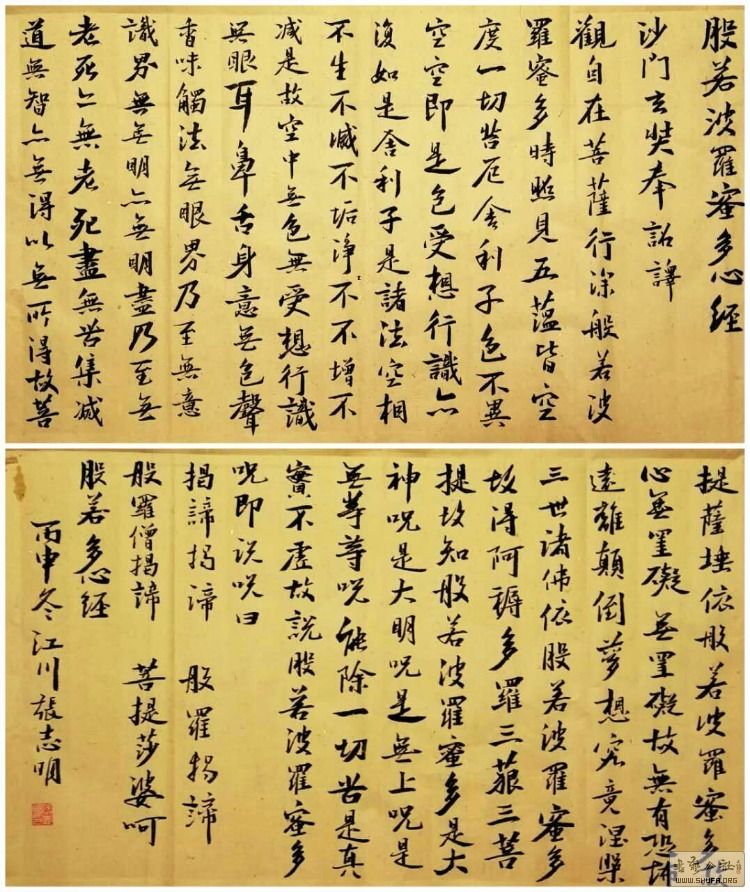 般若波羅蜜多心經
沙门玄奘奉詔譯
觀自在菩薩行深般若波
羅蜜多時照見五蕴皆空
度一切苦厄舍利子色不異
空空即是色受想行識亦
復如是舍利子是諸法空相
不生不滅不垢淨不不增不
减是故空中無色無受想行識
無眼耳鼻舌身意無色聲
香味觸法無眼界乃至無意
識界無無明亦無明盡乃至無
老死亦無老死盡無苦集减
道無智亦無得以無所得故菩
提薩埵依般若波羅蜜多
心無罣礙無罣礙故無有恐怖
遠離顛倒夢想究竟涅槃
三世諸佛依般若波羅蜜多
故得阿耨多羅三藐三菩
提故知般若波羅蜜多是大
神呪是大明呪是無上呪是
無等等呪能除一切苦是真
實不虚故說般若波羅蜜多
呪即说呪曰
揭諦揭諦 般羅揭諦
般羅僧揭諦 菩提莎婆呵
般若多心經
丙申冬江川張志明
WWW.SHUFA.ORG